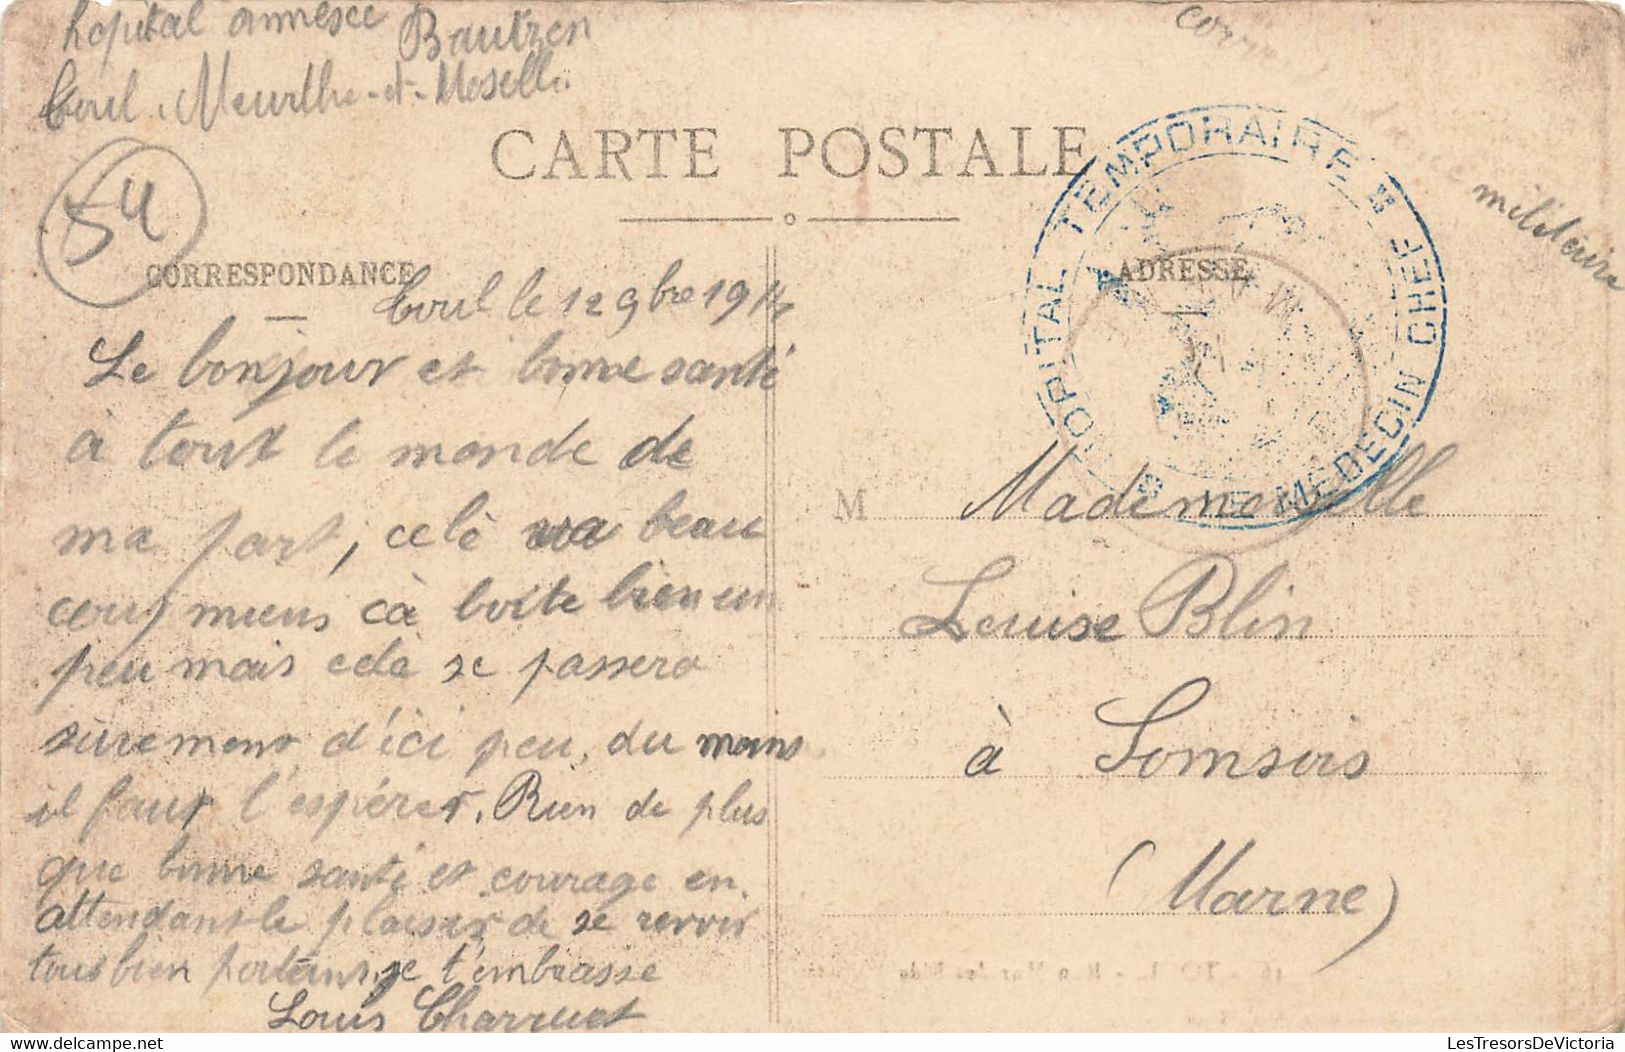 hopital annexe Bautzen
Toul. Meurthe-et-Moselle
militaire
CARTE POSTALE
HOPITAL TEMPORAIRE
LE MEDECIN CHEF
54
CORRESPONDANCE
ADRESSE
Toul le 12 9bre 1914
Le bonjour et bonne santé
à tout le monde de
ma part, celà va beau
coup mieus cà boite bien un
peu mais cela se passera
sûrement d'ici peu, du moins
il faut l'espérer. Rien de plus
que bonne santé et courage en
attendant le plaisir de se revoir
tous bien portants, je t'embrasse
Louis Charruet
M Mademoiselle
Louise Blin
à Somsois
(Marne)
delcampe.net
LesTresorsDeVictoria